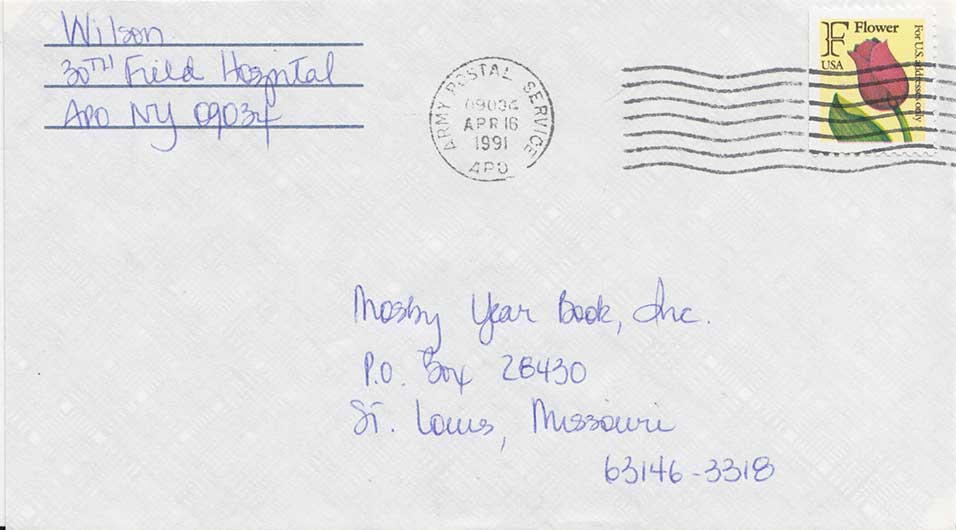 Wilson
30TH Field Hospital
APO NY 09034
ARMY POSTAL SERVICE
09034
APR 16
1991
APO
F Flower
USA
For U.S. addresses only
Mosby Year Book, Inc.
P.O. Box 28430
St. Louis, Missouri
63146-3318